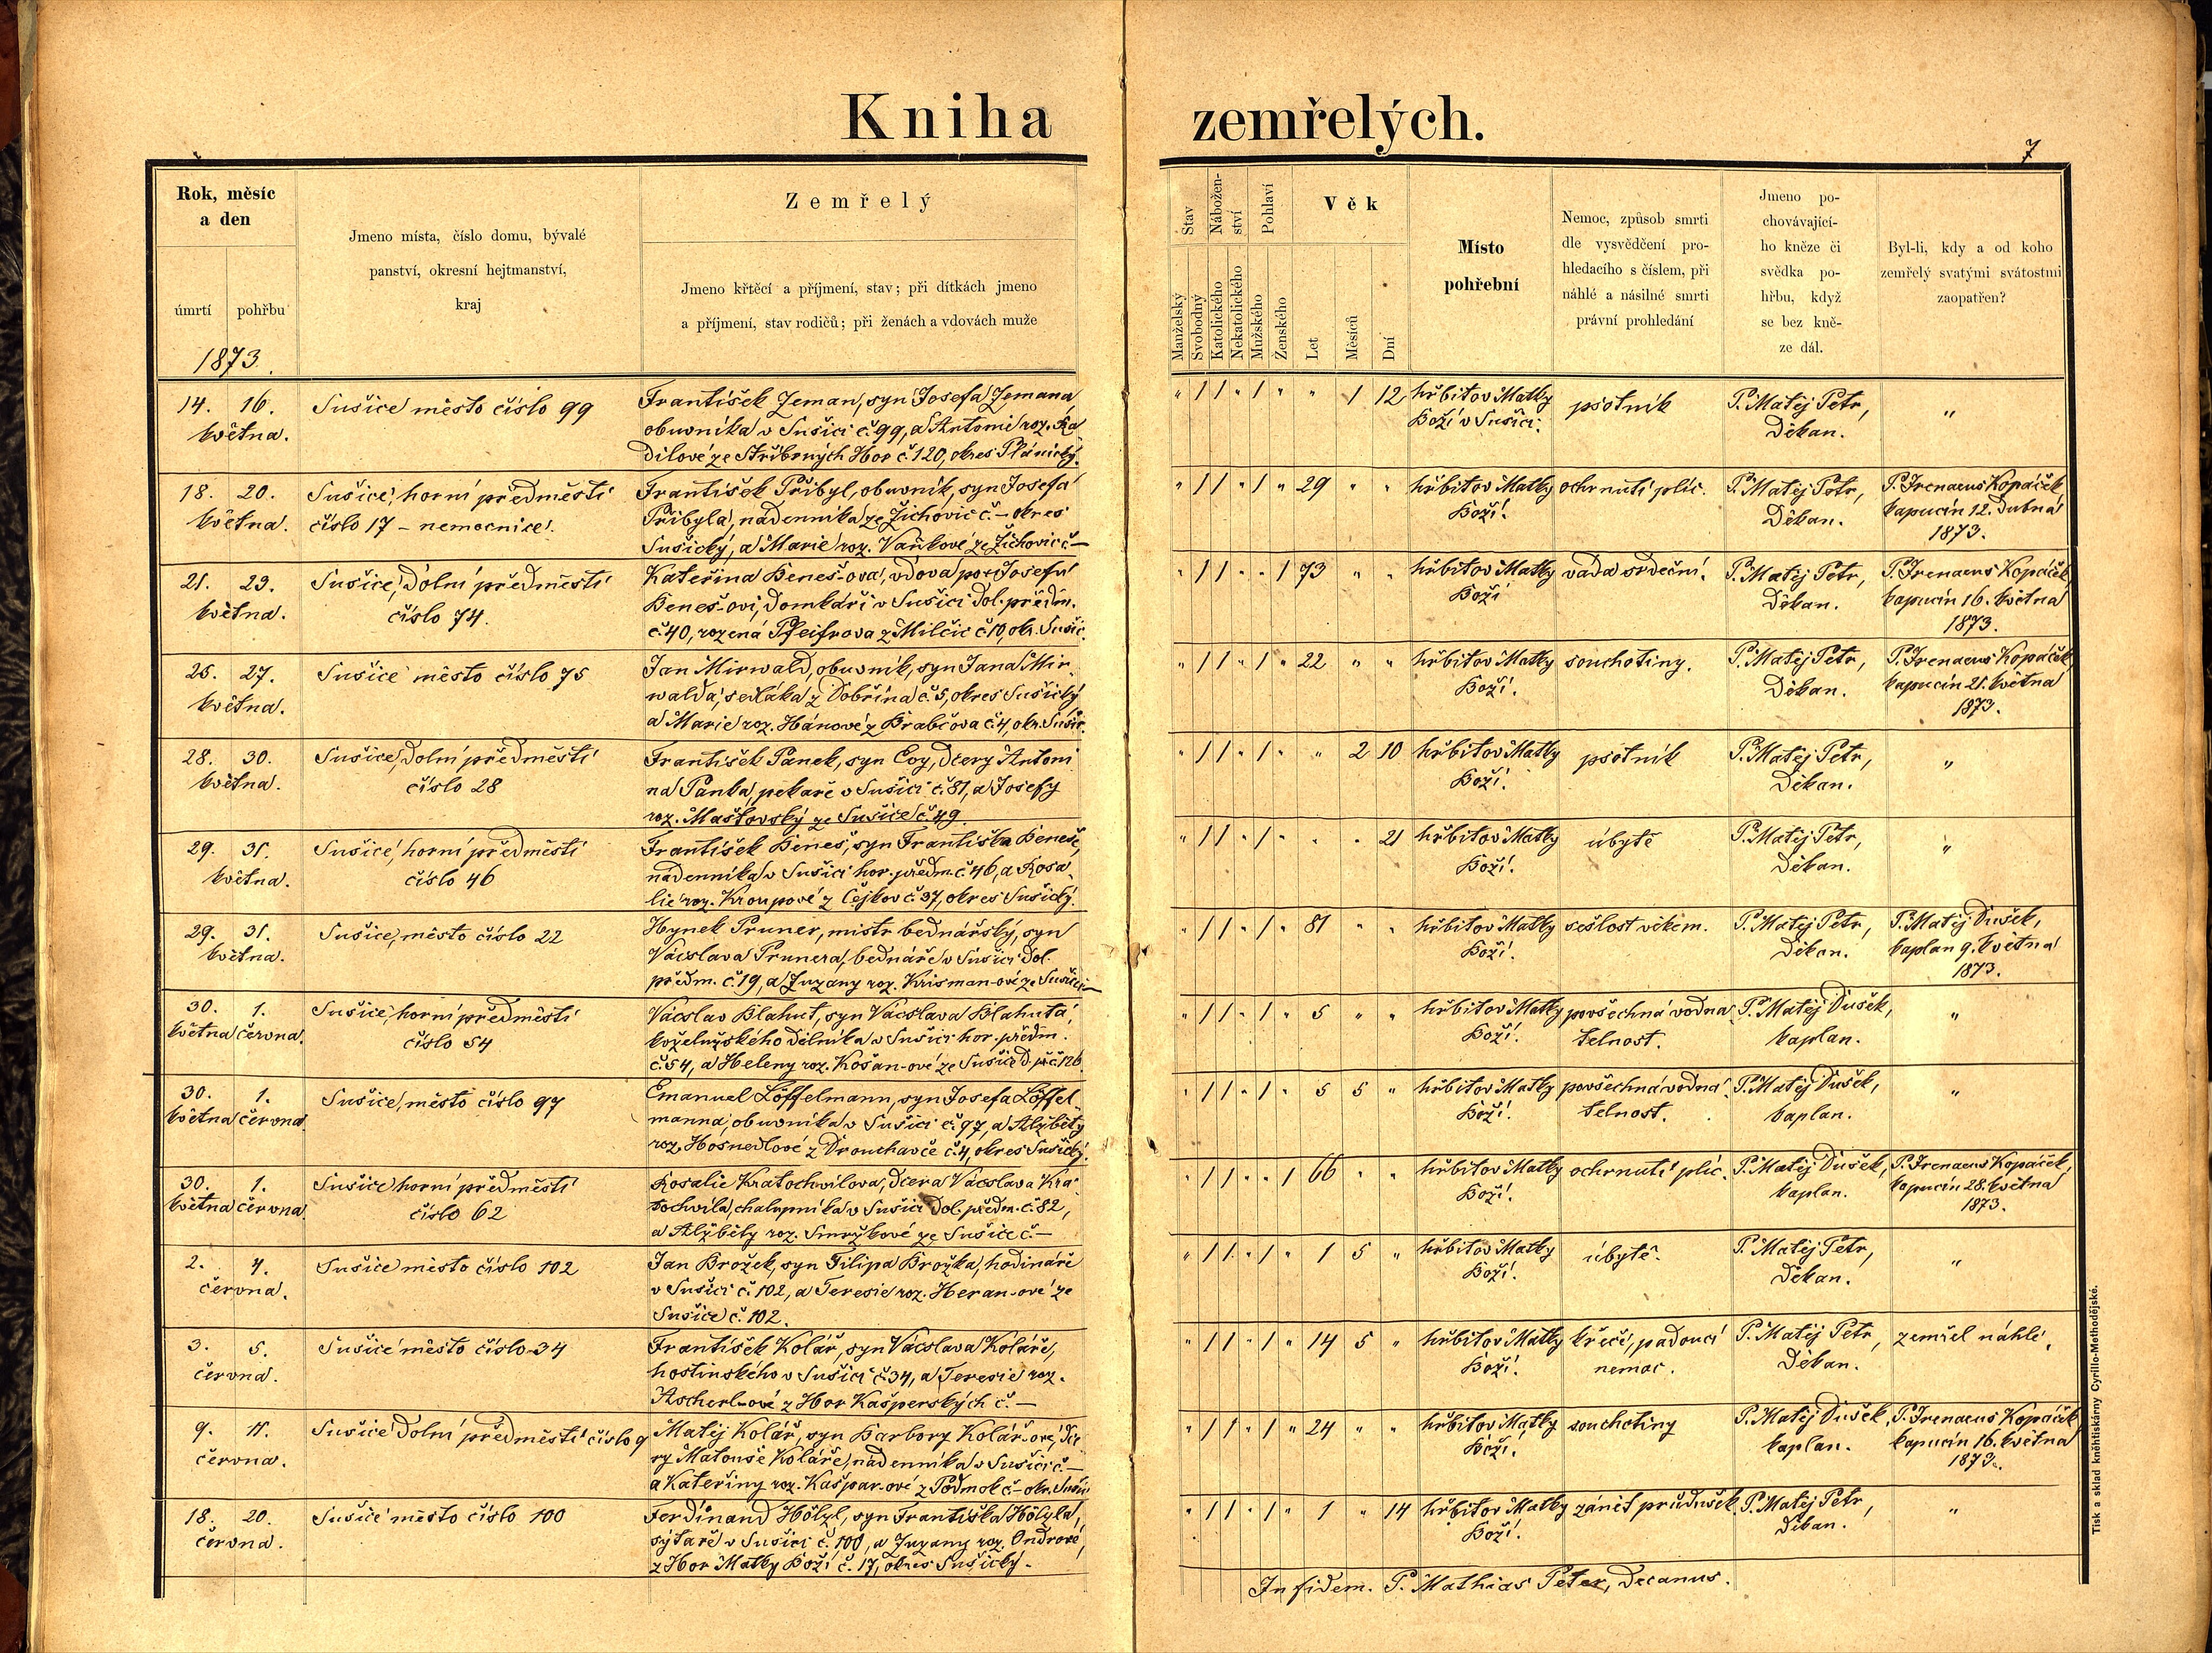 Kniha zemřelých.
7
Rok, měsíc
a den
úmrtí
pohřbu
1873.
Jmeno místa, číslo domu, bývalé
panství, okresní hejtmanství,
kraj
Zemřelý
Jmeno křtěcí a příjmení, stav; při dítkách jmeno
a příjmení, stav rodičů; při ženách a vdovách muže
Stav
Nábožen-
ství
Pohlaví
Věk
Manželský
Svobodný
Katolického
Nekatolického
Mužského
Ženského
Let
Měsíců
Dní
Místo
pohřební
Nemoc, způsob smrti
dle vysvědčení pro-
hledacího s číslem, při
náhlé a násilné smrti
právní prohledání
Jmeno po-
chovávající-
ho kněze či
svědka po-
hřbu, když
se bez kně-
ze dál.
Byl-li, kdy a od koho
zemřelý svatými svátostmi
zaopatřen?
14. 16.
května.
Sušice město číslo 99
František Zeman, syn Josefa Zemana,
obuvníka v Sušici č. 99, a Antonie roz. Ka
dilové ze Stříbrných Hor č. 120, okres Plánický.
" / / " / " " 1 12
hřbitov Matky
Boží v Sušici.
psotník
P. Matěj Petr,
Děkan.
"
18. 20.
května.
Sušice, horní předměstí
číslo 17 – nemocnice.
František Přibyl, obuvník, syn Josefa
Přibyla, nádenníka ze Žichovic č. – okres
Sušický, a Marie roz. Vaňkové ze Žichovic č –
" / / " / " 29 " "
hřbitov Matky
Boží.
ochrnutí plic.
P. Matěj Petr,
Děkan.
P. Irenaeus Kopáček
kapucín 12. dubna
1873.
21. 23.
května.
Sušice, dolní předměstí
číslo 74.
Kateřina Beneš-ova, vdova po Josefu
Beneš-ovi, domkáři v Sušici dol. předm.
č. 40, rozená Pfeifrova z Milčic č. 10, okr. Sušic.
" / / " " / 73 " "
hřbitov Matky
Boží
vada srdeční.
P. Matěj Petr,
Děkan.
P. Irenaeus Kopáček
kapucín 16. května
1873.
25. 27.
května.
Sušice město číslo 75
Jan Mirwald, obuvník, syn Jana Mir
walda, sedláka z Dobřína č. 5, okres Sušický
a Marie roz. Hánové z Brabčova č. 4, okr. Sušic.
" / / " / " 22 " "
hřbitov Matky
Boží.
souchotiny.
P. Matěj Petr,
Děkan.
P. Irenaeus Kopáček
kapucín 21. května
1873.
28. 30.
května.
Sušice, dolní předměstí
číslo 28
František Panek, syn Evy, dcery Antoni
na Panka, pekaře v Sušici č. 81, a Josefy
roz. Maštovský ze Sušice č. 49.
" / / " / " " 2 10
hřbitov Matky
Boží.
psotník
P. Matěj Petr,
Děkan.
"
29. 31.
května.
Sušice, horní předměstí
číslo 46
František Beneš, syn Františka Beneše,
nádenníka v Sušici hor. předm. č. 46, a Rosa-
lie roz. Kroupové z Čejkov č. 37, okres Sušický.
" / / " / " " " 21
hřbitov Matky
Boží.
úbytě
P. Matěj Petr,
Děkan.
"
29. 31.
května.
Sušice, město číslo 22
Hynek Pruner, mistr bednářský, syn
Vácslava Prunera, bednáře v Sušici dol.
předm. č. 19, a Zuzany roz. Krisman-ové ze Sušice –
" / / " / " 81 " "
hřbitov Matky
Boží.
sešlost věkem.
P. Matěj Petr,
Děkan.
P. Matěj Dušek,
kaplan 9. května
1873.
30. 1.
května června.
Sušice, horní předměstí
číslo 54
Vácslav Blahut, syn Vácslava Blahuta,
koželužského dělníka v Sušici hor. předm.
č. 54, a Heleny roz. Košan-ové ze Sušice d. př. č. 126.
" / / " / " 5 " "
hřbitov Matky
Boží.
povšechná vodna
telnost.
P. Matěj Dušek,
kaplan.
"
30. 1.
května června.
Sušice, město číslo 97
Emanuel Löffelmann, syn Josefa Löffel
manna, obuvníka v Sušici č. 97, a Alžběty
roz. Hosnedlové z Drouhavče č. 4, okres Sušický.
" / / " / " 5 5 "
hřbitov Matky
Boží.
povšechná vodna
telnost.
P. Matěj Dušek,
kaplan.
"
30. 1.
května června.
Sušice horní předměstí
číslo 62
Rosalie Kratochvilova, dcera Vácslava Kra-
tochvíla, chalupníka v Sušici dol. předm. č. 82,
a Alžběty roz. Smržkové ze Sušice č. –
" / / " " / 66 " "
hřbitov Matky
Boží.
ochrnutí plic.
P. Matěj Dušek,
kaplan.
P. Irenaeus Kopáček,
kapucín 28. května
1873.
2. 4.
června.
Sušice město číslo 102
Jan Brožek, syn Filipa Brožka, hodináře
v Sušici č. 102, a Teresie roz. Heran-ové ze
Sušice č. 102.
" / / " / " 1 5 "
hřbitov Matky
Boží.
úbytě.
P. Matěj Petr,
Děkan.
"
3. 5.
června.
Sušice město číslo 34
František Kolář, syn Vácslava Koláře,
hostinského v Sušici č. 34, a Teresie roz.
Ascherl-ové z Hor Kašperských č. –
" / / " / " 14 5 "
hřbitov Matky
Boží.
křeče, padoucí
nemoc.
P. Matěj Petr,
Děkan.
zemřel náhle.
9. 11.
června.
Sušice dolní předměstí číslo 9
Matěj Kolář, syn Barbory Kolář-ové, dce
ry Matouše Koláře, nádenníka v Sušici č. –
a Kateřiny roz. Kašpar-ové z Podmok č – okr. Sušic.
" / / " / " 24 " "
hřbitov Matky
Boží.
souchotiny
P. Matěj Dušek,
kaplan.
P. Irenaeus Kopáček
kapucín 16. května
1873.
18. 20.
června.
Sušice město číslo 100
Ferdinand Hölzl, syn Františka Hölzla,
sýtaře v Sušici č. 100, a Zuzany roz. Ondrové,
z Hor Matky Boží č. 17, okres Sušický.
" / / " / " 1 " 14
hřbitov Matky
Boží.
zánět průdušek.
P. Matěj Petr,
Děkan.
"
In fidem. P. Mathias Peter, decanus.
Tisk a sklad knihtiskárny Cyrillo-Methodějské.